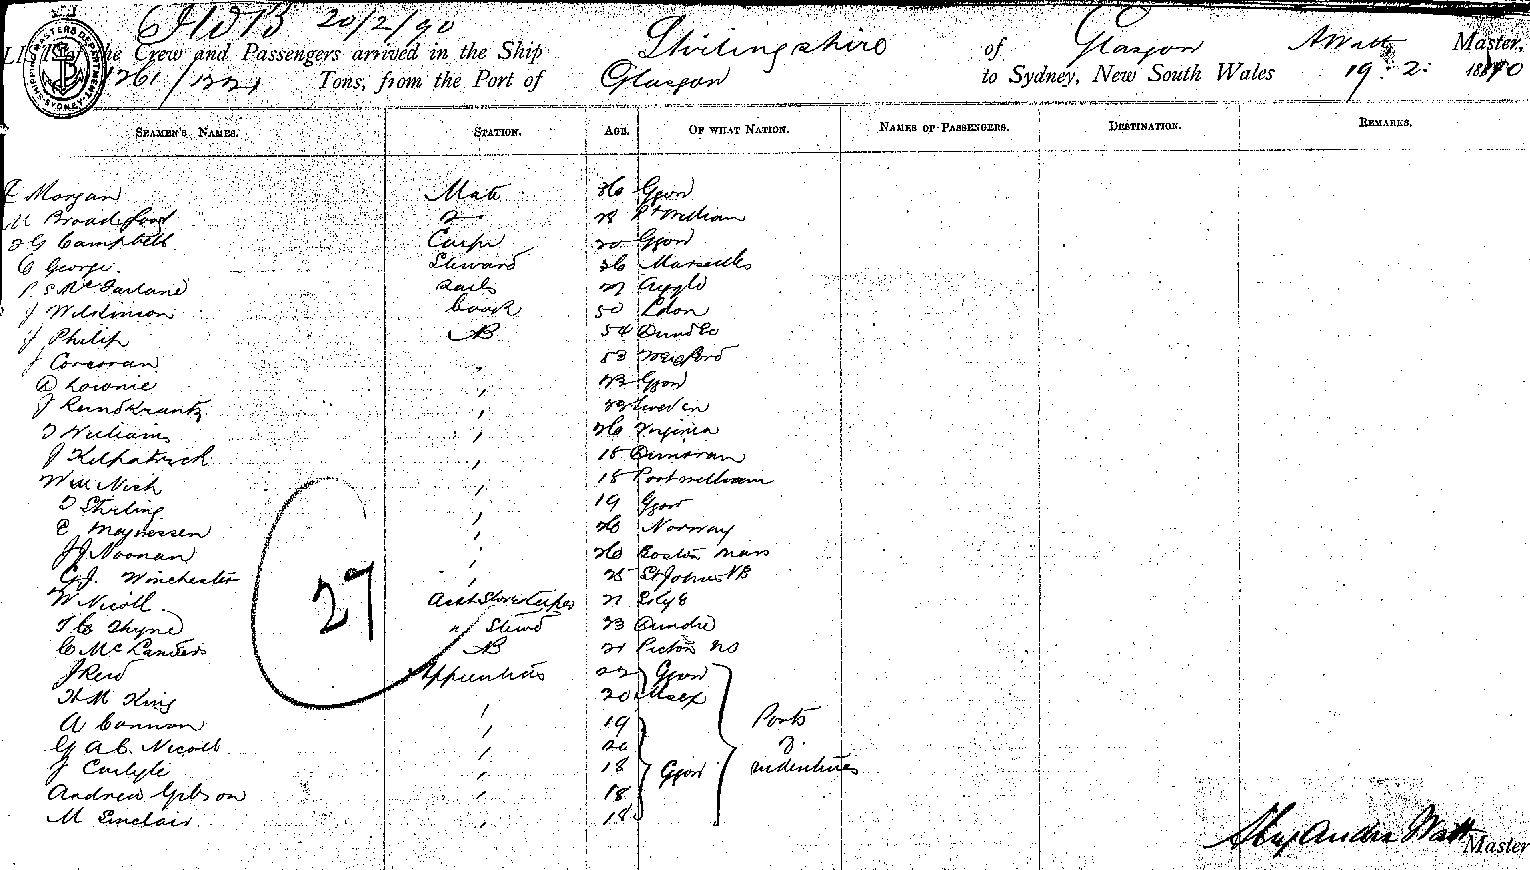 20/2/90
LIST of the Crew and Passengers arrived in the Ship Stirlingshire of Glasgow A Watt Master,
1261 Tons, from the Port of Glasgow to Sydney, New South Wales 19.2. 1890
SHIPPING MASTERS DEPARTMENT SYDNEY
SEAMEN'S NAMES. STATION. AGE. OF WHAT NATION. NAMES OF PASSENGERS. DESTINATION. REMARKS.
Morgan Mate 36 Ggow
M Broadfoot 2 Pt William
J G Campbell Carpr Ggow
C George Steward 36 Marseilles
P S McFarlane Sails 27 Argyle
J Wilkinson Cook 50 Ldon
J Philip AB 54 Dundee
J Corcoran " 53 Wexford
D Lownie " 43 Ggow
J Rundkrantz " Sweden
T Williams " 26 Virginia
J Kilpatrick " 18 Dunoran
Wm Nish " 18 Port william
T Stirling " 19 Ggow
E Magnessen " 26 Norway
J J Noonan " 26 Boston Mass
G J. Winchester " 25 St Johns NB
W Nicoll. Asst Storekeeper 21
T C Thyne " Stewd 23 Dundee
C McLanders AB 21 Pictou NS
J Reid Apprentices 22 Ggow
H M King " 20
A Cannon " 19
G A C. Nicoll " 20 Ports
J Carlyle " 18 Ggow indentures
Andrew Gibson " 18
M Sinclair " 18
27
Alexander Watt Master